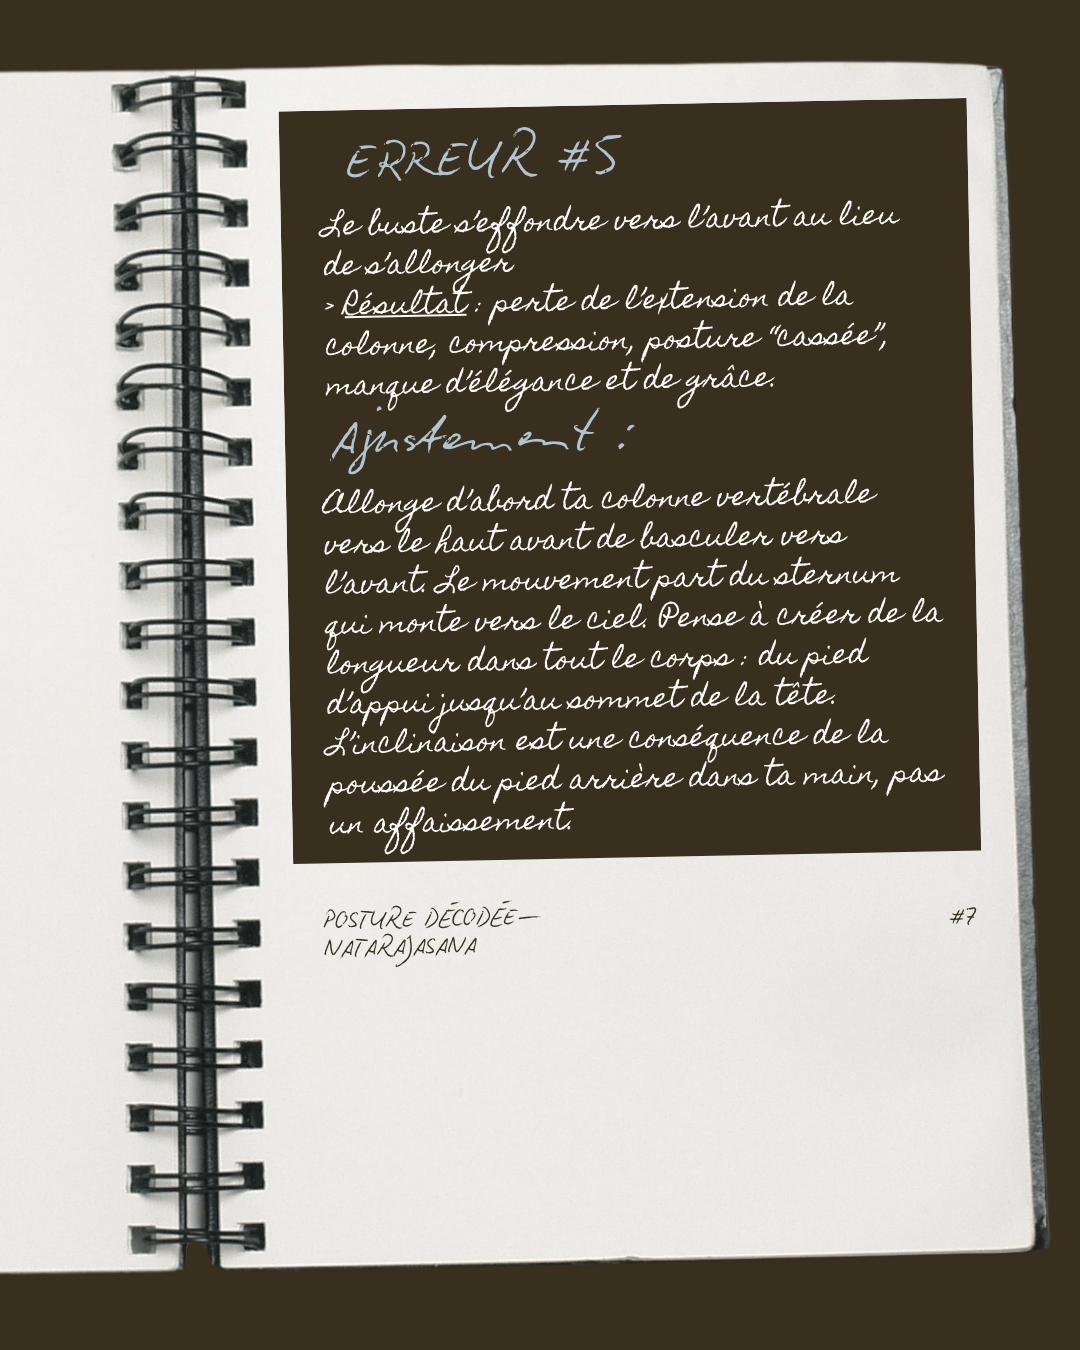 ERREUR #5
Le buste s'effondre vers l'avant au lieu
de s'allonger
> Résultat : perte de l'extension de la
colonne, compression, posture "cassée",
manque d'élégance et de grâce.
Ajustement :
Allonge d'abord ta colonne vertébrale
vers le haut avant de basculer vers
l'avant. Le mouvement part du sternum
qui monte vers le ciel. Pense à créer de la
longueur dans tout le corps : du pied
d'appui jusqu'au sommet de la tête.
L'inclinaison est une conséquence de la
poussée du pied arrière dans ta main, pas
un affaissement.
POSTURE DÉCODÉE—
NATARAJASANA
#7